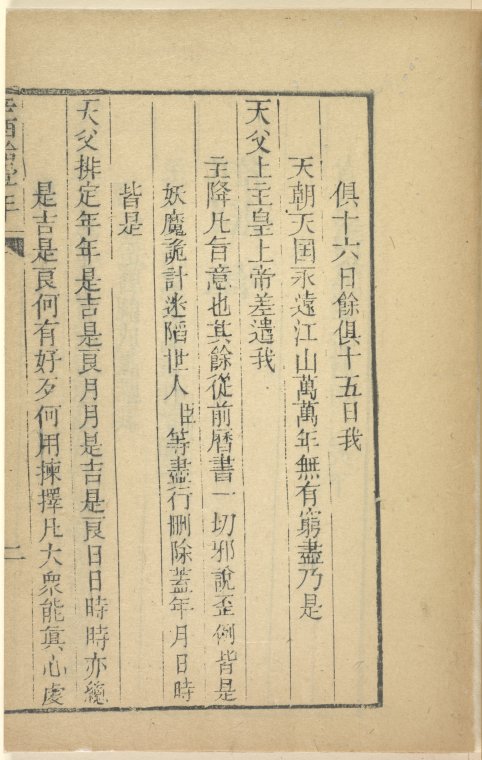 俱十六日餘俱十五日我
天朝天国永遠江山萬萬年無有窮盡乃是
天父上主皇上帝差遣我
主降凡旨意也其餘從前曆書一切邪說歪例皆是
妖魔詭計迷陷世人臣等盡行刪除蓋年月日時
皆是
天父排定年年是吉是良月月是吉是良日日時時亦總
是吉是良何有好歹何用揀擇凡大眾能眞心虔
二